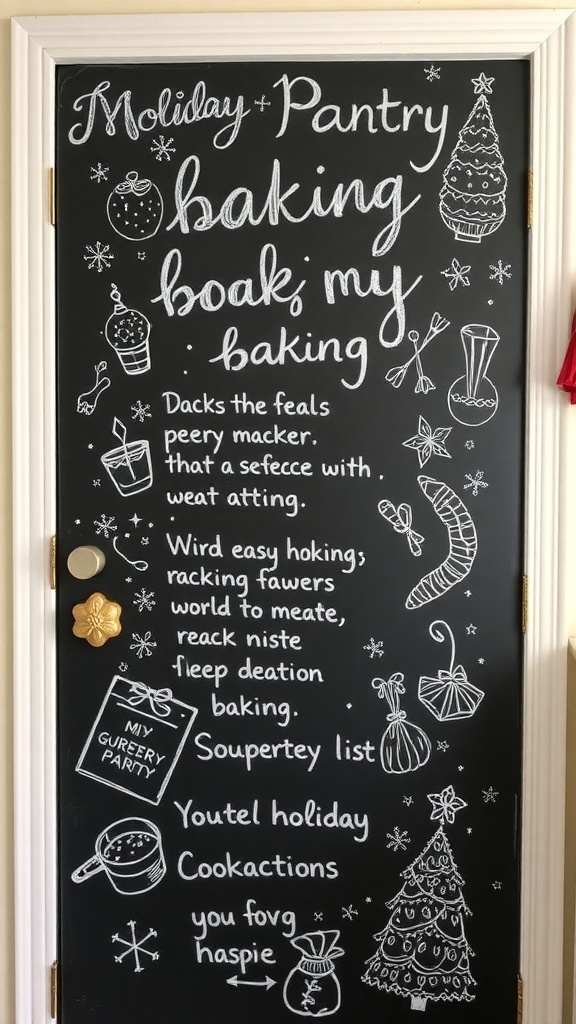 Moliday Pantry
baking
boak; my
baking
Dacks the feals
peery macker.
that a sefecce with.
weat atting.
Wird easy hoking;
racking fawers
world to meate,
reack niste
fleep deation
baking.
MIY
GUREERY
PARITY
Soupertey list
Youtel holiday
Cookactions
you fovg
haspie